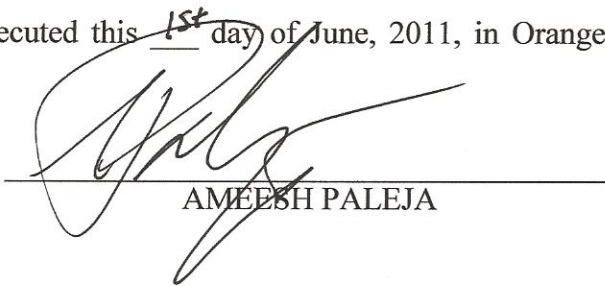 ecuted this 1st day of June, 2011, in Orange
AMEESH PALEJA